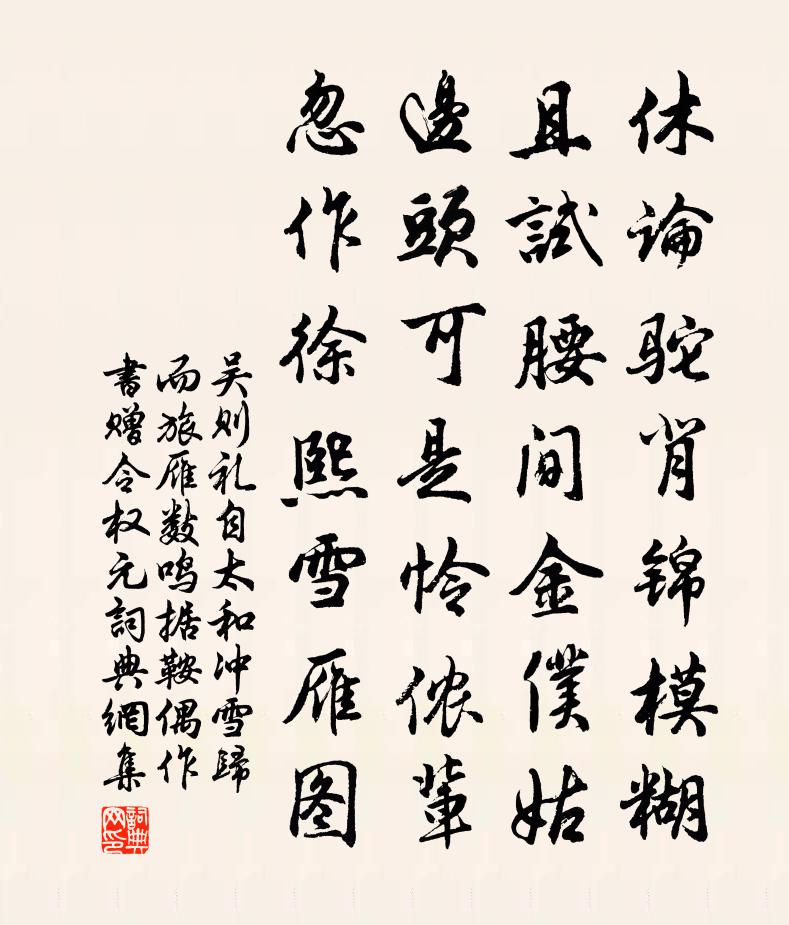 休论驼背锦模糊
且試腰间金僕姑
邊頭可是怜侬輩
忽作徐熙雪雁图
吴则礼自太和冲雪歸
而旅雁数鸣据鞍偶作
書赠令权元詞典網集
詞典网印